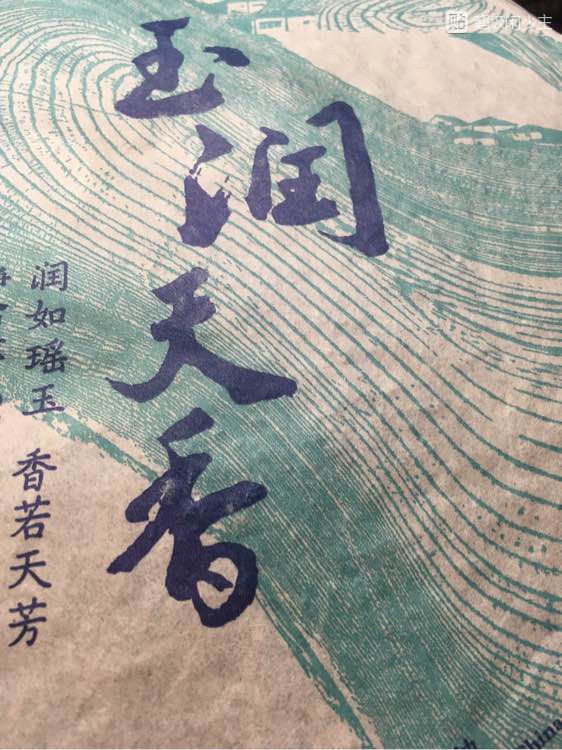 玉润天香
润如瑶玉 香若天芳
China